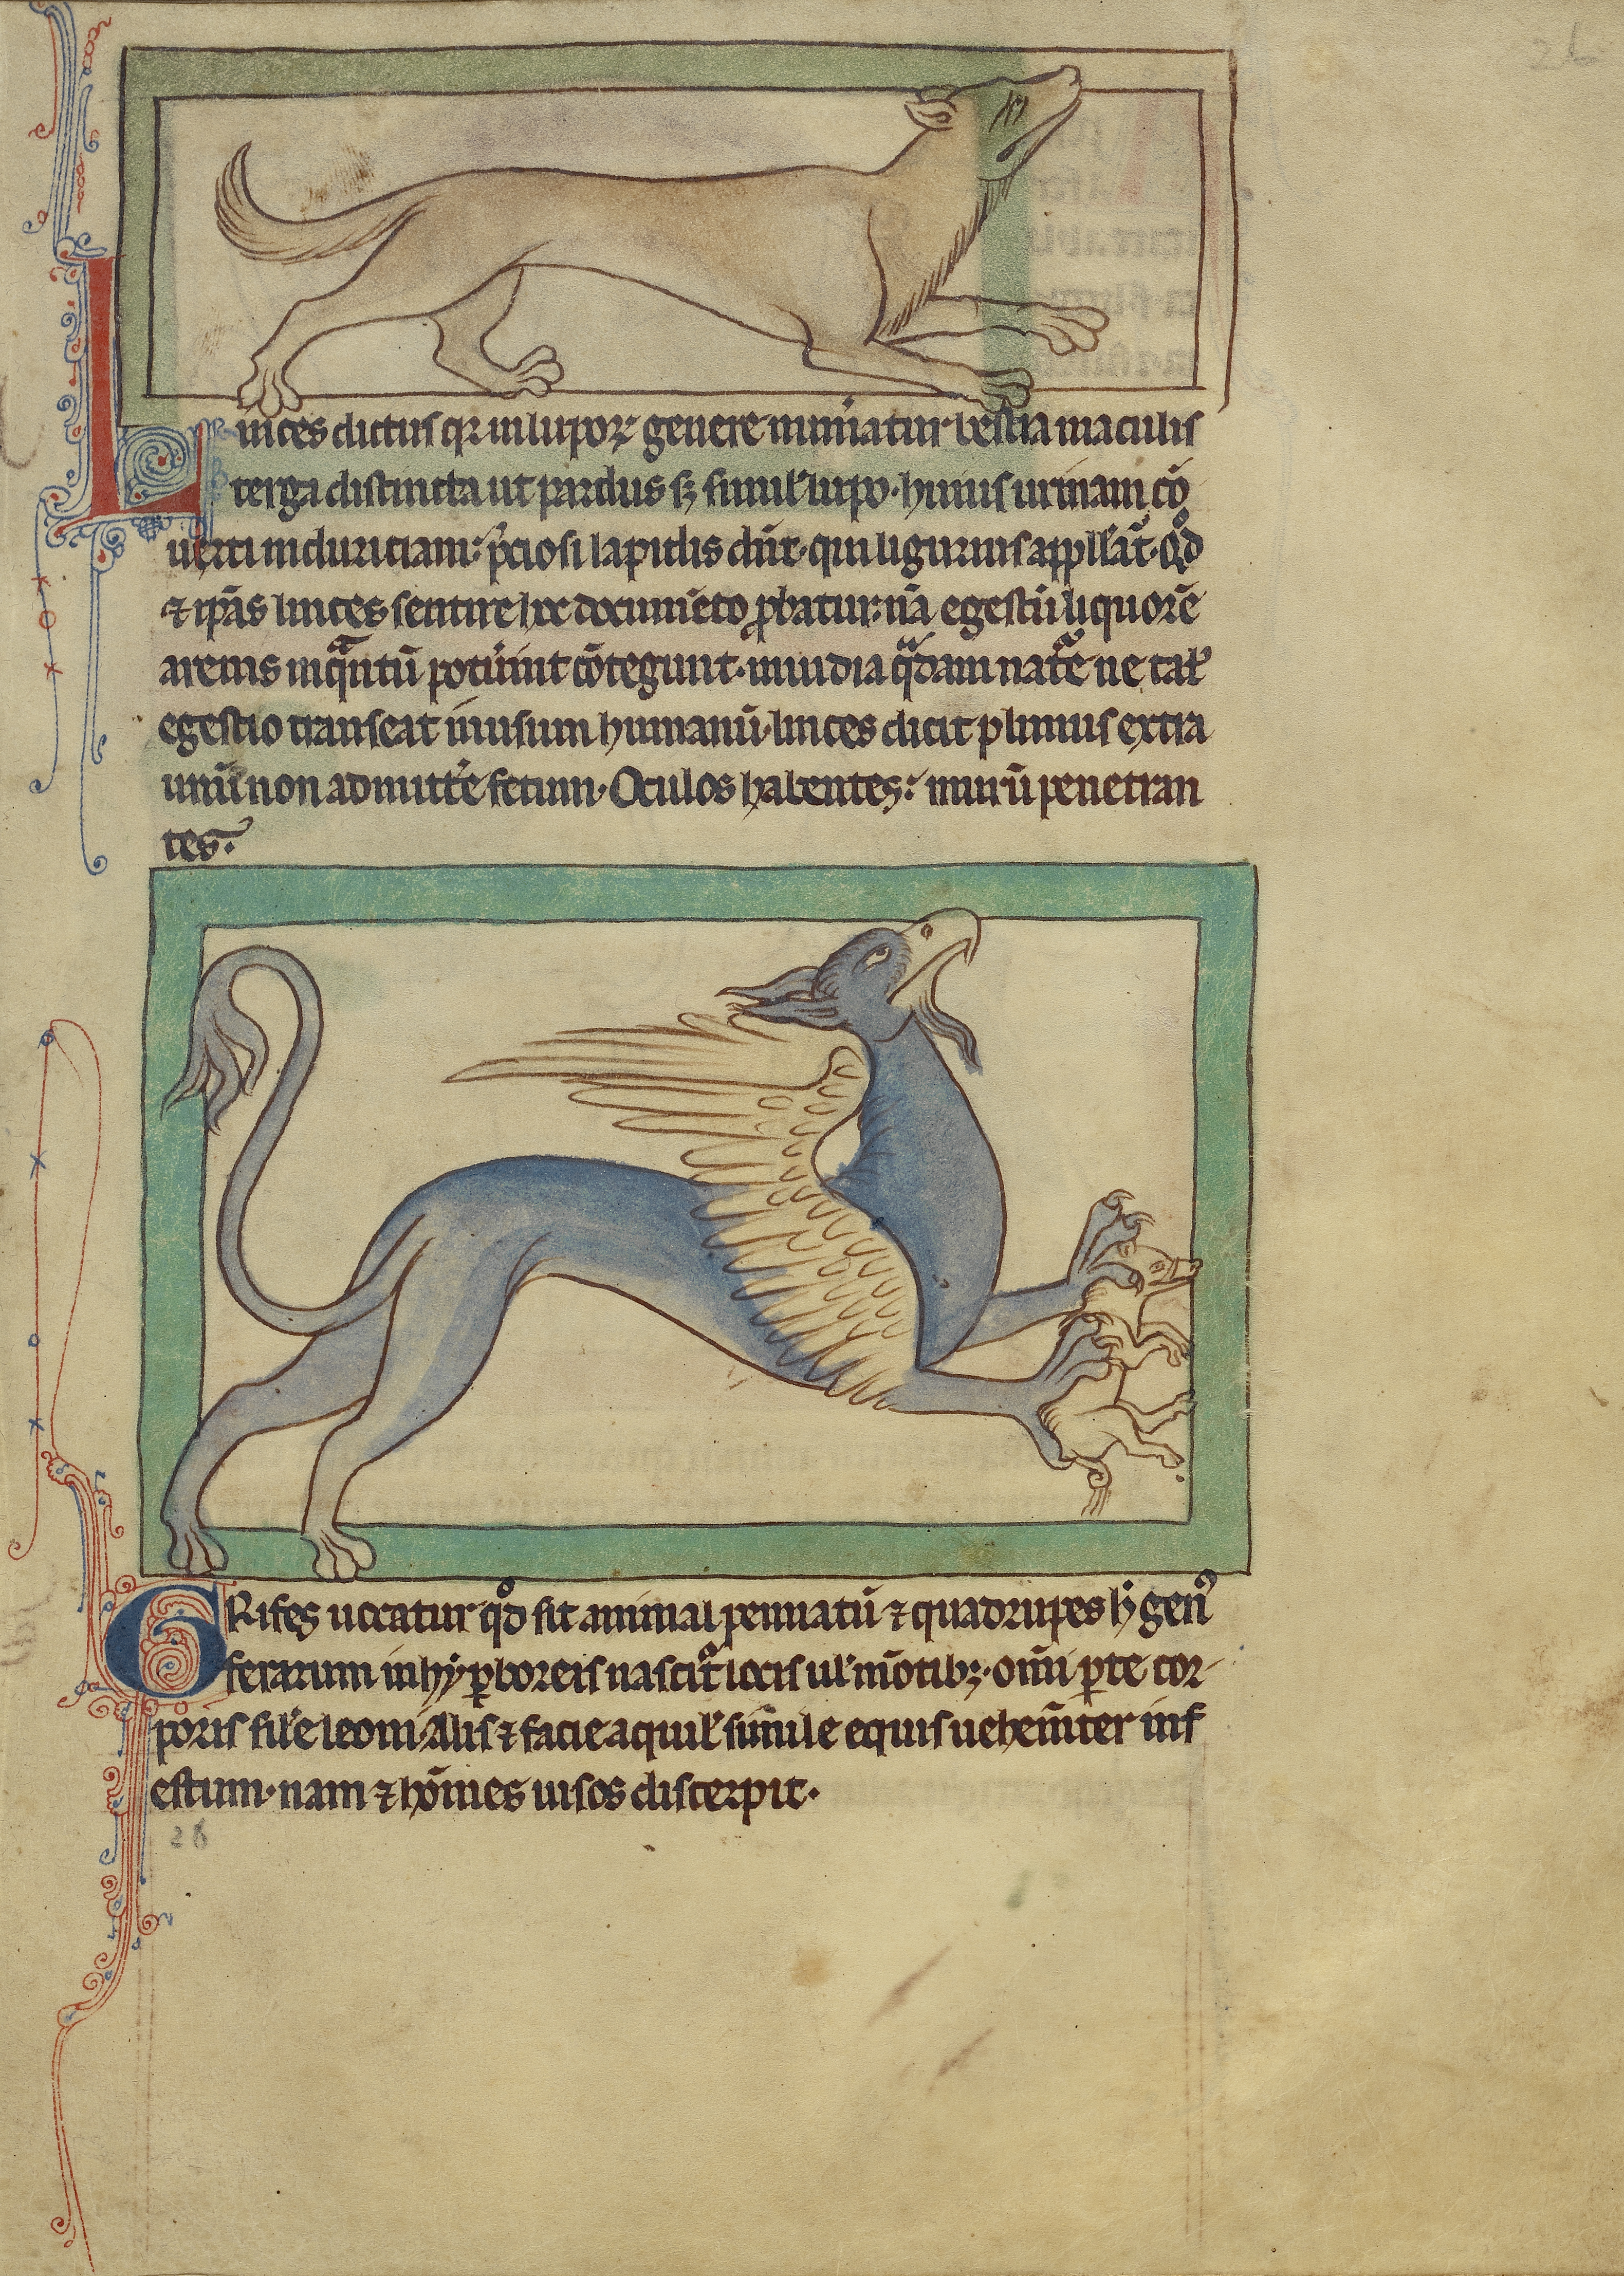 26
Linces dictus qꝛ in lupoꝝ genere numeratur bestia maculis
terga distincta ut pardus sꝫ similꝰ lupo. huius urinam cō
uerti in duriciam p̄ciosi lapidis dn̄t. qui ligurius appll̄at̄. qd̊
⁊ ip̄as linces sentire hoc documēto ꝓbatur: nā egestū liquorē
arenis inqᷓntū potūint cōtegunt. inuidia qᷓdam natᷓe ne tal̕
egestio transeat in usum humanū. linces dicit plinius extra
unū non admitt̕e fetum. Oculos habentes: murū penetran
tes.
GRifes uocatur qd̊ sit animal pennatū ⁊ quadrupes h̕ gen̕
ferarum in hyꝑboreis nascit̕ locis ul̕ mōtibꝫ. omī ꝑte cor-
poris sil̕e leoni Alis ⁊ facie aquil̕ simile equis uehem̄ter inf
estum. nam ⁊ hōines uisos discerpit.
26